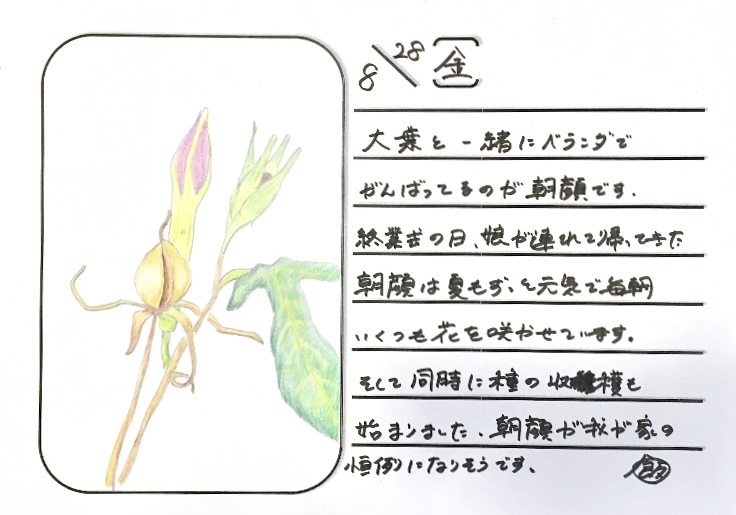 8/28 [金]
大葉と一緒にベランダで
がんばってるのが朝顔です.
終業式の日、娘が連れて帰ってきた
朝顔は夏もずっと元気で毎朝
いくつも花を咲かせています。
そして同時に種の収穫も
始まりました、朝顔が我が家の
恒例になりそうです、